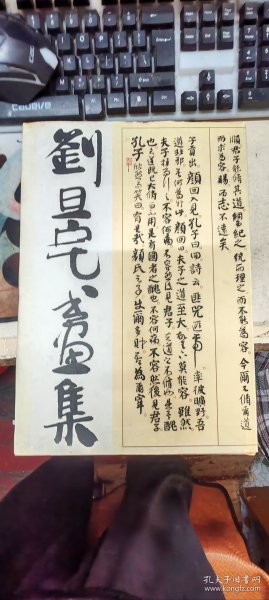 劉旦宅書畫集
順君子能脩其道綱而紀之統而理之而不能為容今爾不脩爾道
而求為容賜而志不遠矣
子貢出顏回入見孔子曰回詩云匪兕匪虎率彼曠野吾
道非邪吾何為於此顏回曰夫子之道至大故天下莫能容雖然
夫子推而行之不容何病不容然後見君子夫道之不脩也是吾醜
也夫道既已大脩而不用是有國者之醜也不容何病不容然後見君子
孔子欣然而笑曰有是哉顏氏之子使爾多財吾為爾宰
孔夫子旧书网